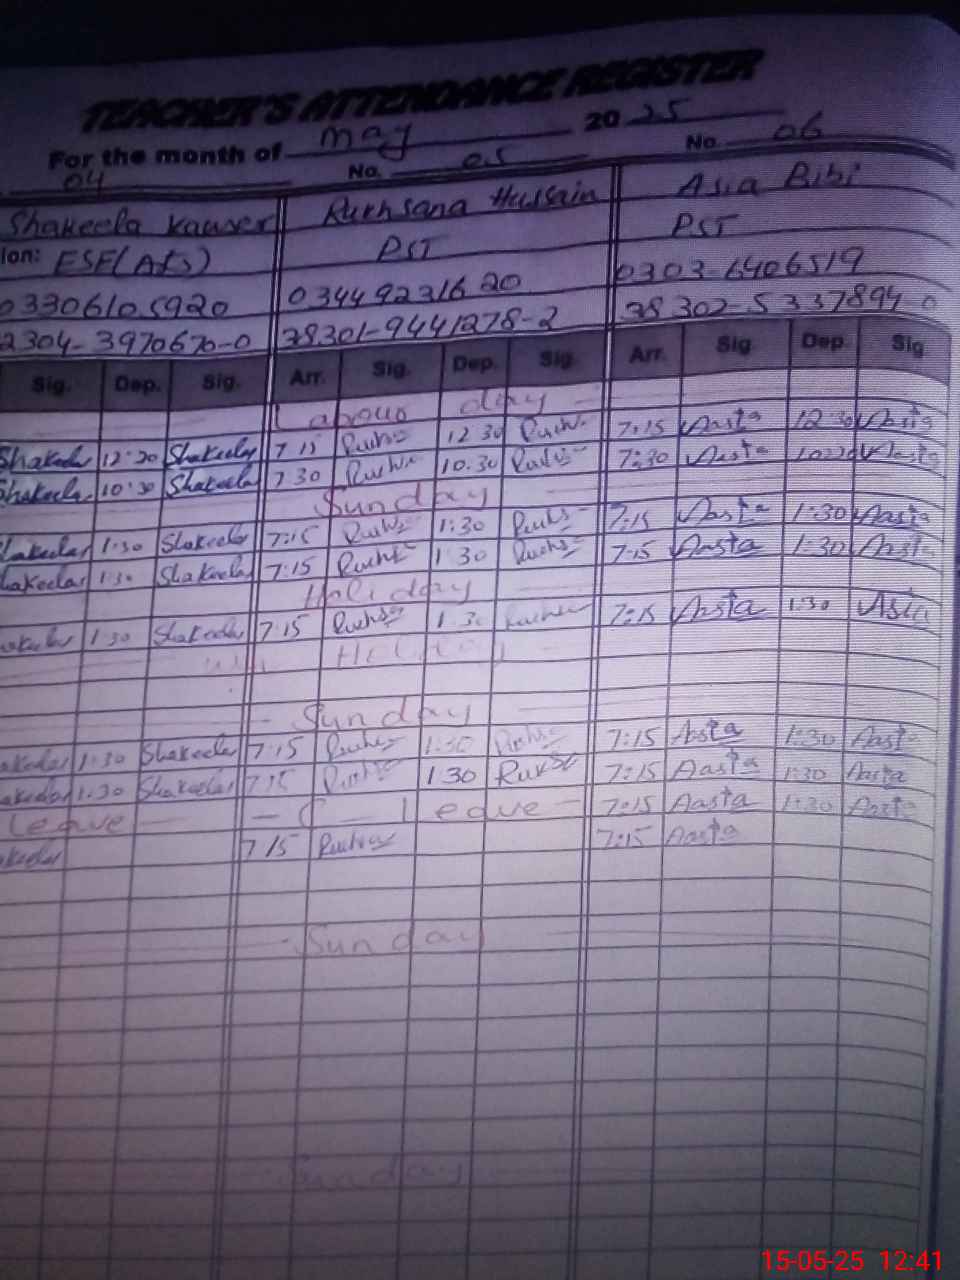 TEACHER'S ATTENDANCE REGISTER
For the month of may 2025
04 No. 05 No. 06
Shakeela Kauser Rukhsana Hussain Asia Bibi
ion: ESE(Ats) PST PST
03306105920 03449231620 0303-6406519
2304-3970670-0 38301-9441278-2 38302-5337894-0
Sig. Dep. Sig. Arr. Sig. Dep. Sig. Arr. Sig Dep. Sig
Labour day
Shakeela 12:30 Shakeela 7 15 12 30 7:15 Aasia 12 30 Aasia
Shakeela 10:30 Shakeela 7 30 10.30 7:30 Aasia Aasia
Sunday
Shakeela 1:30 Shakeela 7:15 1:30 7:15 Aasia 1:30 Aasia
Shakeela 1:30 Shakeela 7:15 1:30 7:15 Aasia 1:30 Aasia
Holiday
1:30 Shakeela 7:15 1:30 7:15 Aasia 1:30 Asia
Holiday
- Sunday
1:30 Shakeela 7:15 1:30 7:15 Aasia 1:30 Aasia
1:30 Shakeela 7:15 1 30 7:15 Aasia 1:30 Aasia
Leave Leave 7:15 Aasia 1:30 Aasia
7 15 7:15 Aasia
- Sunday
Sunday
15-05-25 12:41